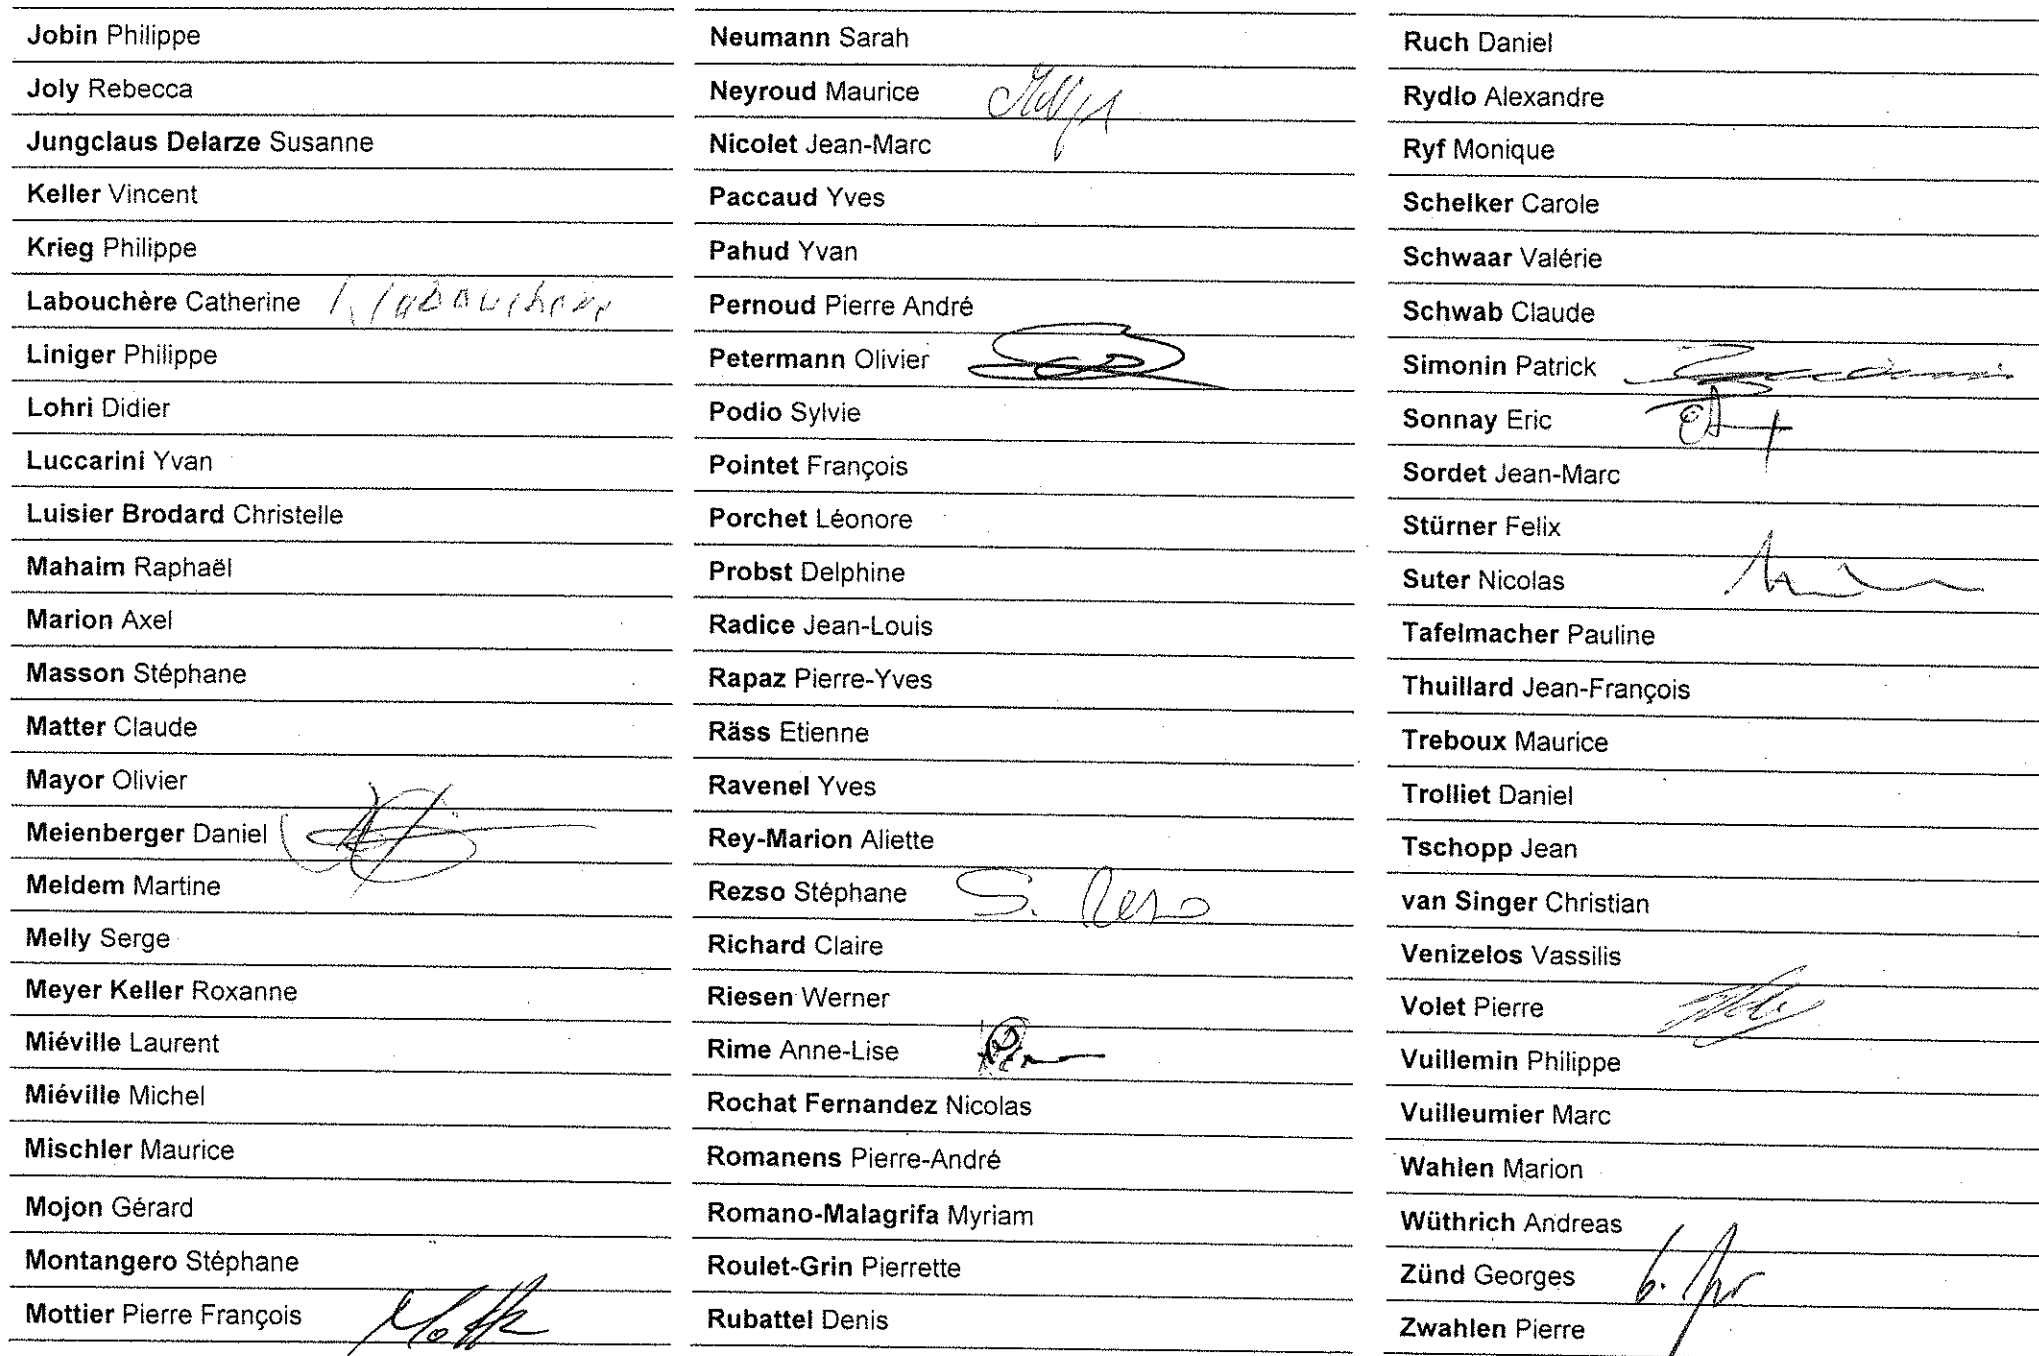 Jobin Philippe
Joly Rebecca
Jungclaus Delarze Susanne
Keller Vincent
Krieg Philippe
Labouchère Catherine Labouchère
Liniger Philippe
Lohri Didier
Luccarini Yvan
Luisier Brodard Christelle
Mahaim Raphaël
Marion Axel
Masson Stéphane
Matter Claude
Mayor Olivier
Meienberger Daniel
Meldem Martine
Melly Serge
Meyer Keller Roxanne
Miéville Laurent
Miéville Michel
Mischler Maurice
Mojon Gérard
Montangero Stéphane
Mottier Pierre François
Neumann Sarah
Neyroud Maurice
Nicolet Jean-Marc
Paccaud Yves
Pahud Yvan
Pernoud Pierre André
Petermann Olivier
Podio Sylvie
Pointet François
Porchet Léonore
Probst Delphine
Radice Jean-Louis
Rapaz Pierre-Yves
Räss Etienne
Ravenel Yves
Rey-Marion Aliette
Rezso Stéphane S. Rezso
Richard Claire
Riesen Werner
Rime Anne-Lise
Rochat Fernandez Nicolas
Romanens Pierre-André
Romano-Malagrifa Myriam
Roulet-Grin Pierrette
Rubattel Denis
Ruch Daniel
Rydlo Alexandre
Ryf Monique
Schelker Carole
Schwaar Valérie
Schwab Claude
Simonin Patrick
Sonnay Eric
Sordet Jean-Marc
Stürner Felix
Suter Nicolas
Tafelmacher Pauline
Thuillard Jean-François
Treboux Maurice
Trolliet Daniel
Tschopp Jean
van Singer Christian
Venizelos Vassilis
Volet Pierre
Vuillemin Philippe
Vuilleumier Marc
Wahlen Marion
Wüthrich Andreas
Zünd Georges
Zwahlen Pierre